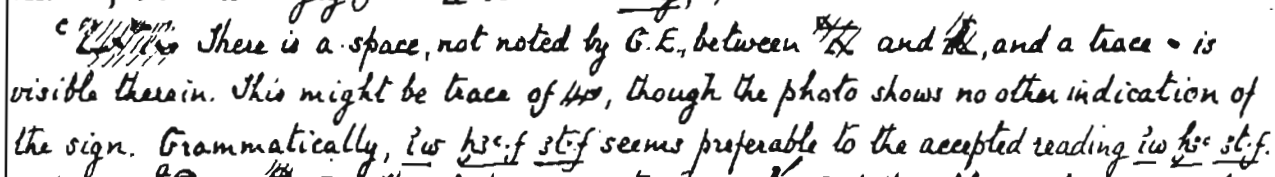 c There is a space, not noted by G.E., between and , and a trace • is
visible therein. This might be trace of , though the photo shows no other indication of
the sign. Grammatically, ỉw ḫꜣꜥ.f ꜣt.f seems preferable to the accepted reading ỉw ḫꜣꜥ ꜣt.f.